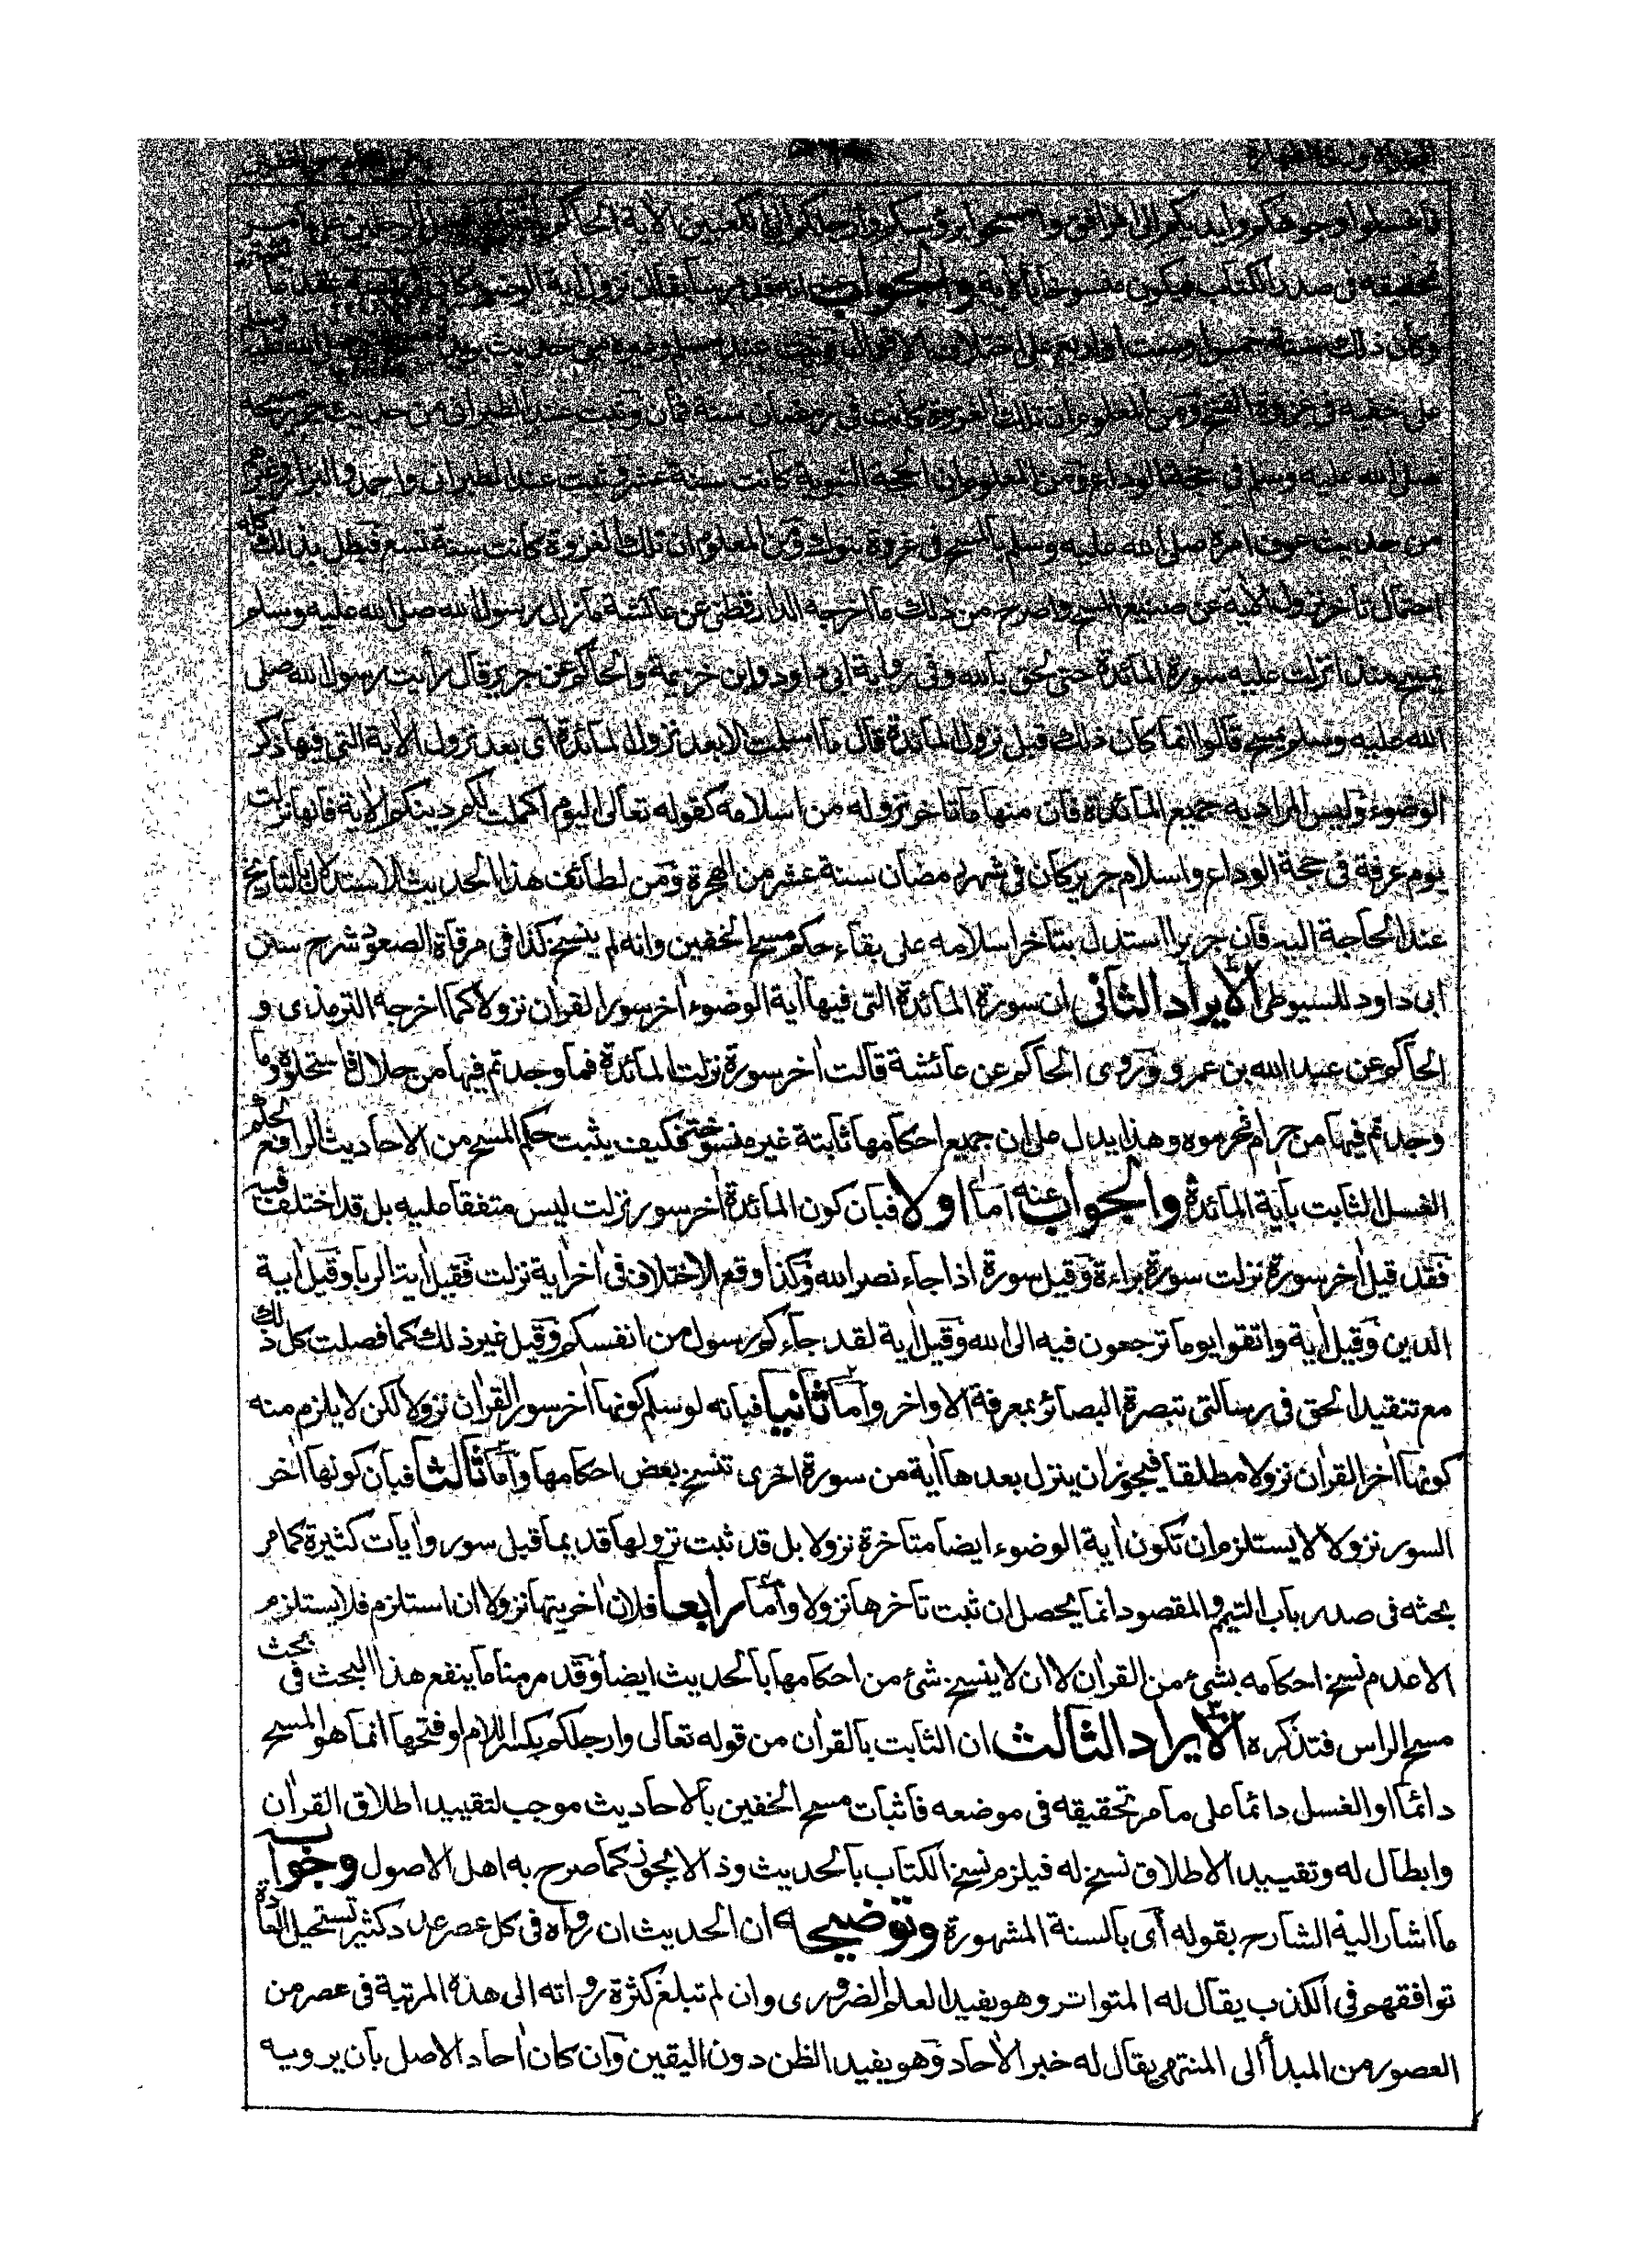 فاغسلوا وجوهكم وايديكم الى المرافق وامسحوا برؤسكم وارجلكم الى الكعبين الآية
تحقيقه فى صدر الكتاب فيكون منسوخا بالآية والجواب عنه
وكان ذلك سنة خمس او ست او اربع على اختلاف الاقوال وثبت عند مسلم وغيره من حديث
على خفيه فى غزوة الفتح ومن المعلوم ان تلك الغزوة كانت فى رمضان سنة ثمان وثبت عند الطبرانى من حديث جرير مسحه
صلى الله عليه وسلم فى حجة الوداع ومن المعلوم ان الحجة النبوية كانت سنة عشر وثبت عند الطبرانى واحمد والبزار وغيرهم
من حديث عوف امره صلى الله عليه وسلم بالمسح فى غزوة تبوك ومن المعلوم ان تلك الغزوة كانت سنة تسع فبطل بذلك كله
احتمال تاخر نزول الآية عن صنيع المسح واصرح من ذلك ما اخرجه الدارقطنى عن عائشة ما زال رسول الله صلى الله عليه وسلم
يمسح منذ انزلت عليه سورة المائدة حتى لحق بالله وفى رواية ابى داود وابن خزيمة والحاكم عن جرير قال رأيت رسول الله صلى
الله عليه وسلم يمسح قالوا انما كان ذلك قبل نزول المائدة قال ما اسلمت الا بعد نزول المائدة اى بعد نزول الآية التى فيها ذكر
الوضوء وليس المراد به جميع المائدة فان منها ما تاخر نزوله من اسلامه كقوله تعالى اليوم اكملت لكم دينكم الآية فانها نزلت
يوم عرفة فى حجة الوداع واسلام جرير كان فى شهر رمضان سنة عشر من الهجرة ومن لطائف هذا الحديث الاستدلال بالتاريخ
عند الحاجة اليه فان جريرا استدل بتاخر اسلامه على بقاء حكم مسح الخفين وانه لم ينسخ كذا فى مرقاة الصعود شرح سنن
ابى داود للسيوطى الايراد الثانى ان سورة المائدة التى فيها آية الوضوء اخر سور القرآن نزولا كما اخرجه الترمذى و
الحاكم عن عبد الله بن عمرو وروى الحاكم عن عائشة قالت اخر سورة نزلت المائدة فما وجدتم فيها من حلال فاستحلوه وما
وجدتم فيها من حرام فحرموه وهذا يدل على ان جميع احكامها ثابتة غير منسوخة فكيف يثبت حكم المسح من الاحاديث الرافع لحكم
الغسل الثابت بآية المائدة والجواب عنه اما اولا فبان كون المائدة اخر سور نزلت ليس متفقا عليه بل قد اختلف فيه
فقد قيل اخر سورة نزلت سورة براءة وقيل سورة اذا جاء نصر الله وكذا وقع الاختلاف فى اخر آية نزلت فقيل آية الربا وقيل آية
الدين وقيل آية واتقوا يوما ترجعون فيه الى الله وقيل آية لقد جاءكم رسول من انفسكم وقيل غير ذلك كما فصلت كل ذلك
مع تنقيد الحق فى رسالتى تبصرة البصائر بمعرفة الاواخر واما ثانيا فبانه لو سلم كونها اخر سور القرآن نزولا لكن لا يلزم منه
كونها اخر القرآن نزولا مطلقا فيجوز ان ينزل بعدها آية من سورة اخرى تنسخ بعض احكامها واما ثالثا فبان كونها اخر
السور نزولا لا يستلزم ان تكون آية الوضوء ايضا متاخرة نزولا بل قد ثبت نزولها قديما قبل سور وآيات كثيرة كما مر
بحثه فى صدر باب التيمم والمقصود انما يحصل ان ثبت تاخرها نزولا واما رابعا فلان اخريتها نزولا ان استلزم فلا يستلزم
الا عدم نسخ احكامه بشئ من القرآن لا ان لا ينسخ شئ من احكامها بالحديث ايضا وقد مر منا ما ينفع هذا البحث فى بحث
مسح الراس فتذكره الايراد الثالث ان الثابت بالقرآن من قوله تعالى وارجلكم بكسر اللام او فتحها انما هو المسح
دائما او الغسل دائما على ما مر تحقيقه فى موضعه فاثبات مسح الخفين بالاحاديث موجب لتقييد اطلاق القرآن
وابطال له وتقييد الاطلاق نسخ له فيلزم نسخ الكتاب بالحديث وذا لا يجوز كما صرح به اهل الاصول وجوابه
ما اشار اليه الشارح بقوله اى بالسنة المشهورة وتوضيحه ان الحديث ان رواه فى كل عصر عدد كثير تستحيل العادة
توافقهم فى الكذب يقال له المتواتر وهو يفيد العلم الضرورى وان لم تبلغ كثرة رواته الى هذه المرتبة فى عصر من
العصور من المبدأ الى المنتهى يقال له خبر الآحاد وهو يفيد الظن دون اليقين وان كان آحاد الاصل بان يرويه